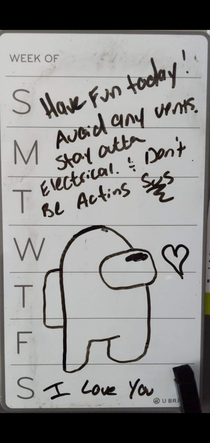 WEEK OF
S Have Fun today!
Avoid any vents.
M Stay outta
T Electrical. & Don't
Be Acting Sus
W
T
F
S I Love You
U BRA